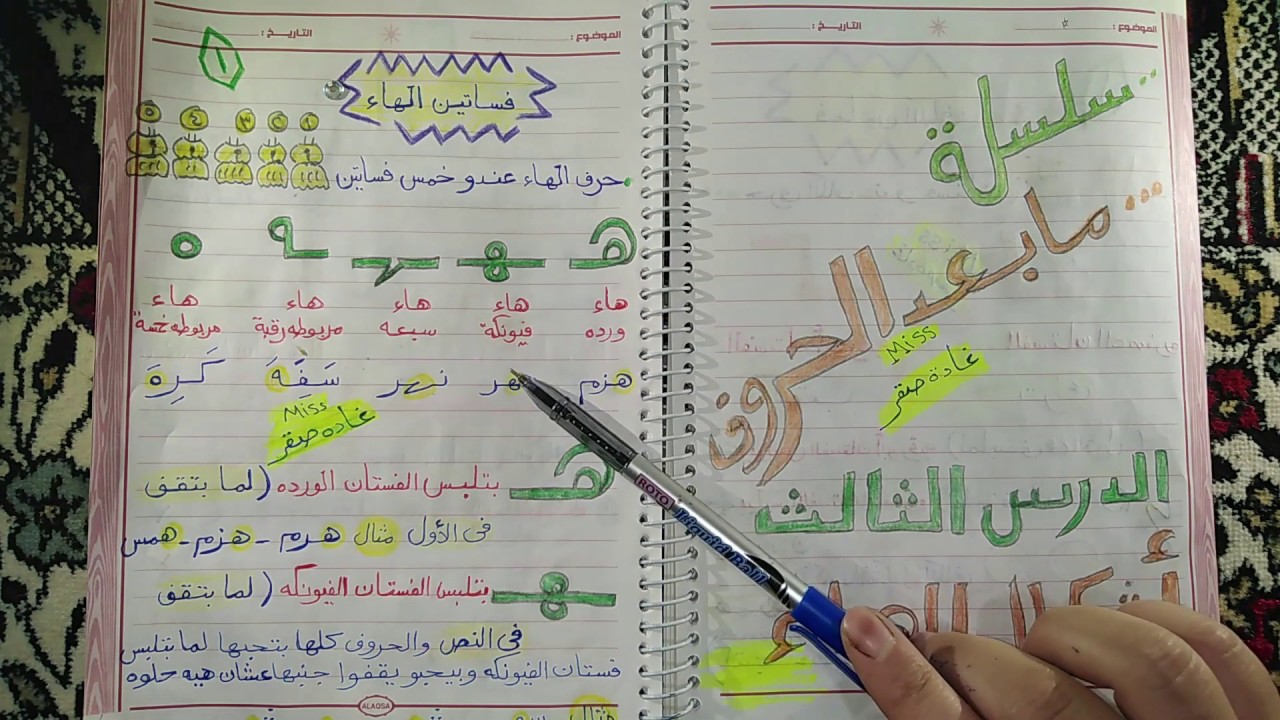 الموضوع :
التاريخ :
سلسلة
ما بعد الحروف
Miss
غادة صقر
الدرس الثالث
أشكال الهاء
الموضوع :
التاريخ :
١
فساتين الهاء
١ ٢ ٣ ٤ ٥
حرف الهاء عندو خمس فساتين
هـ ـهـ ـهـ ـه ه
هاء هاء هاء هاء هاء
ورده فيونكة سبعه مربوطه رقبة مربوطه خمة
هزم نهر سَفَّهَ كَرِهَ
Miss
غاده صقر
هـ بتلبس الفستان الورده (لما بتقف
فى الأول مثال هرم - هزم - همس
ـهـ بتلبس الفستان الفيونكه (لما بتقف
فى النص والحروف كلها بتحبها لما بتلبس
فستان الفيونكه وبيجبو يقفوا جنبها عشان هيه حلوه
مثال
ALAQSA
ROTO Liquid Ball